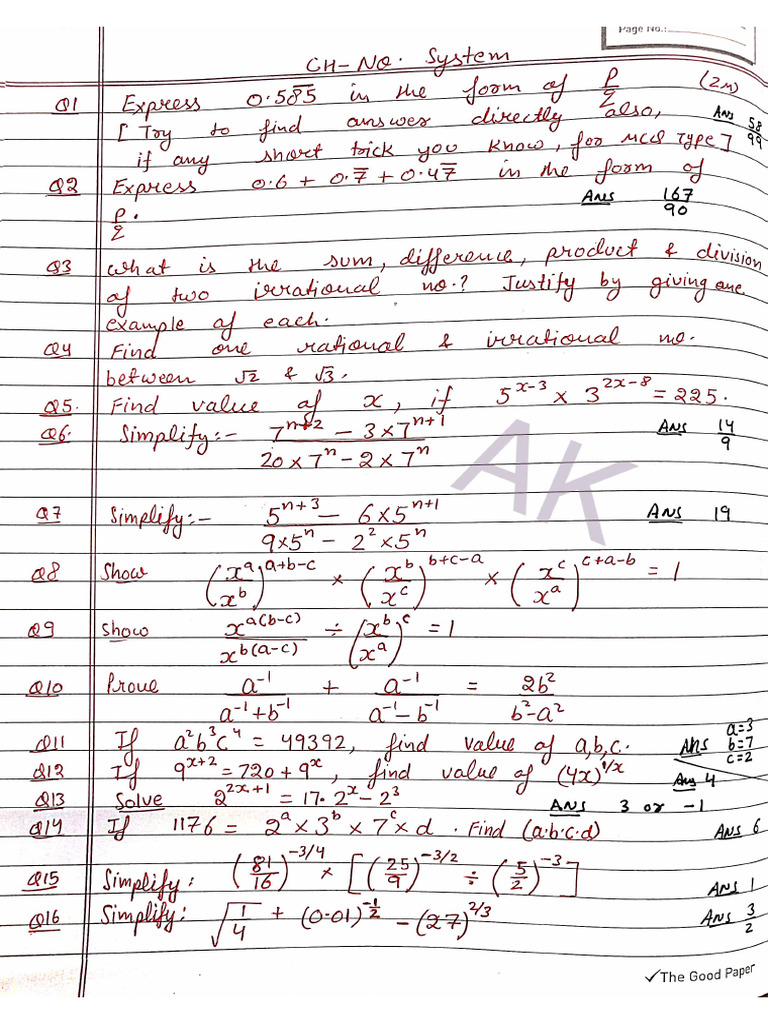 Page No.:
CH-NO. System
Q1 Express 0.58̅5̅ in the form of p/q (2M)
[Try to find answer directly also, Ans 58/99
if any short trick you know, for MCQ type]
Q2 Express 0.6 + 0.7̅ + 0.47̅ in the form of
p/q. Ans 167/90
Q3 What is the sum, difference, product & division
of two irrational no.? Justify by giving one
example of each.
Q4 Find one rational & irrational no.
between √2 & √3.
Q5. Find value of x, if 5^(x-3) × 3^(2x-8) = 225.
Q6. Simplify:- (7^(n+2) - 3×7^(n+1)) / (20×7^n - 2×7^n) Ans 14/9
Q7 Simplify:- (5^(n+3) - 6×5^(n+1)) / (9×5^n - 2^2×5^n) Ans 19
Q8 Show (x^a/x^b)^(a+b-c) × (x^b/x^c)^(b+c-a) × (x^c/x^a)^(c+a-b) = 1
Q9 Show x^(a(b-c)) / x^(b(a-c)) ÷ (x^b/x^a)^c = 1
Q10 Prove a^-1/(a^-1+b^-1) + a^-1/(a^-1-b^-1) = 2b^2/(b^2-a^2)
Q11 If a^2b^3c^4 = 49392, find value of a,b,c. Ans a=3 b=7 c=2
Q12 If 9^(x+2) = 720 + 9^x, find value of (4x)^(1/x) Ans 4
Q13 Solve 2^(2x+1) = 17.2^x - 2^3 Ans 3 or -1
Q14 If 1176 = 2^a × 3^b × 7^c × d. Find (a.b.c.d) Ans 6
Q15 Simplify: (81/16)^(-3/4) × [(25/9)^(-3/2) ÷ (5/2)^-3] Ans 1
Q16 Simplify: √(1/4) + (0.01)^(-1/2) - (27)^(2/3) Ans 3/2
AK
✓The Good Paper